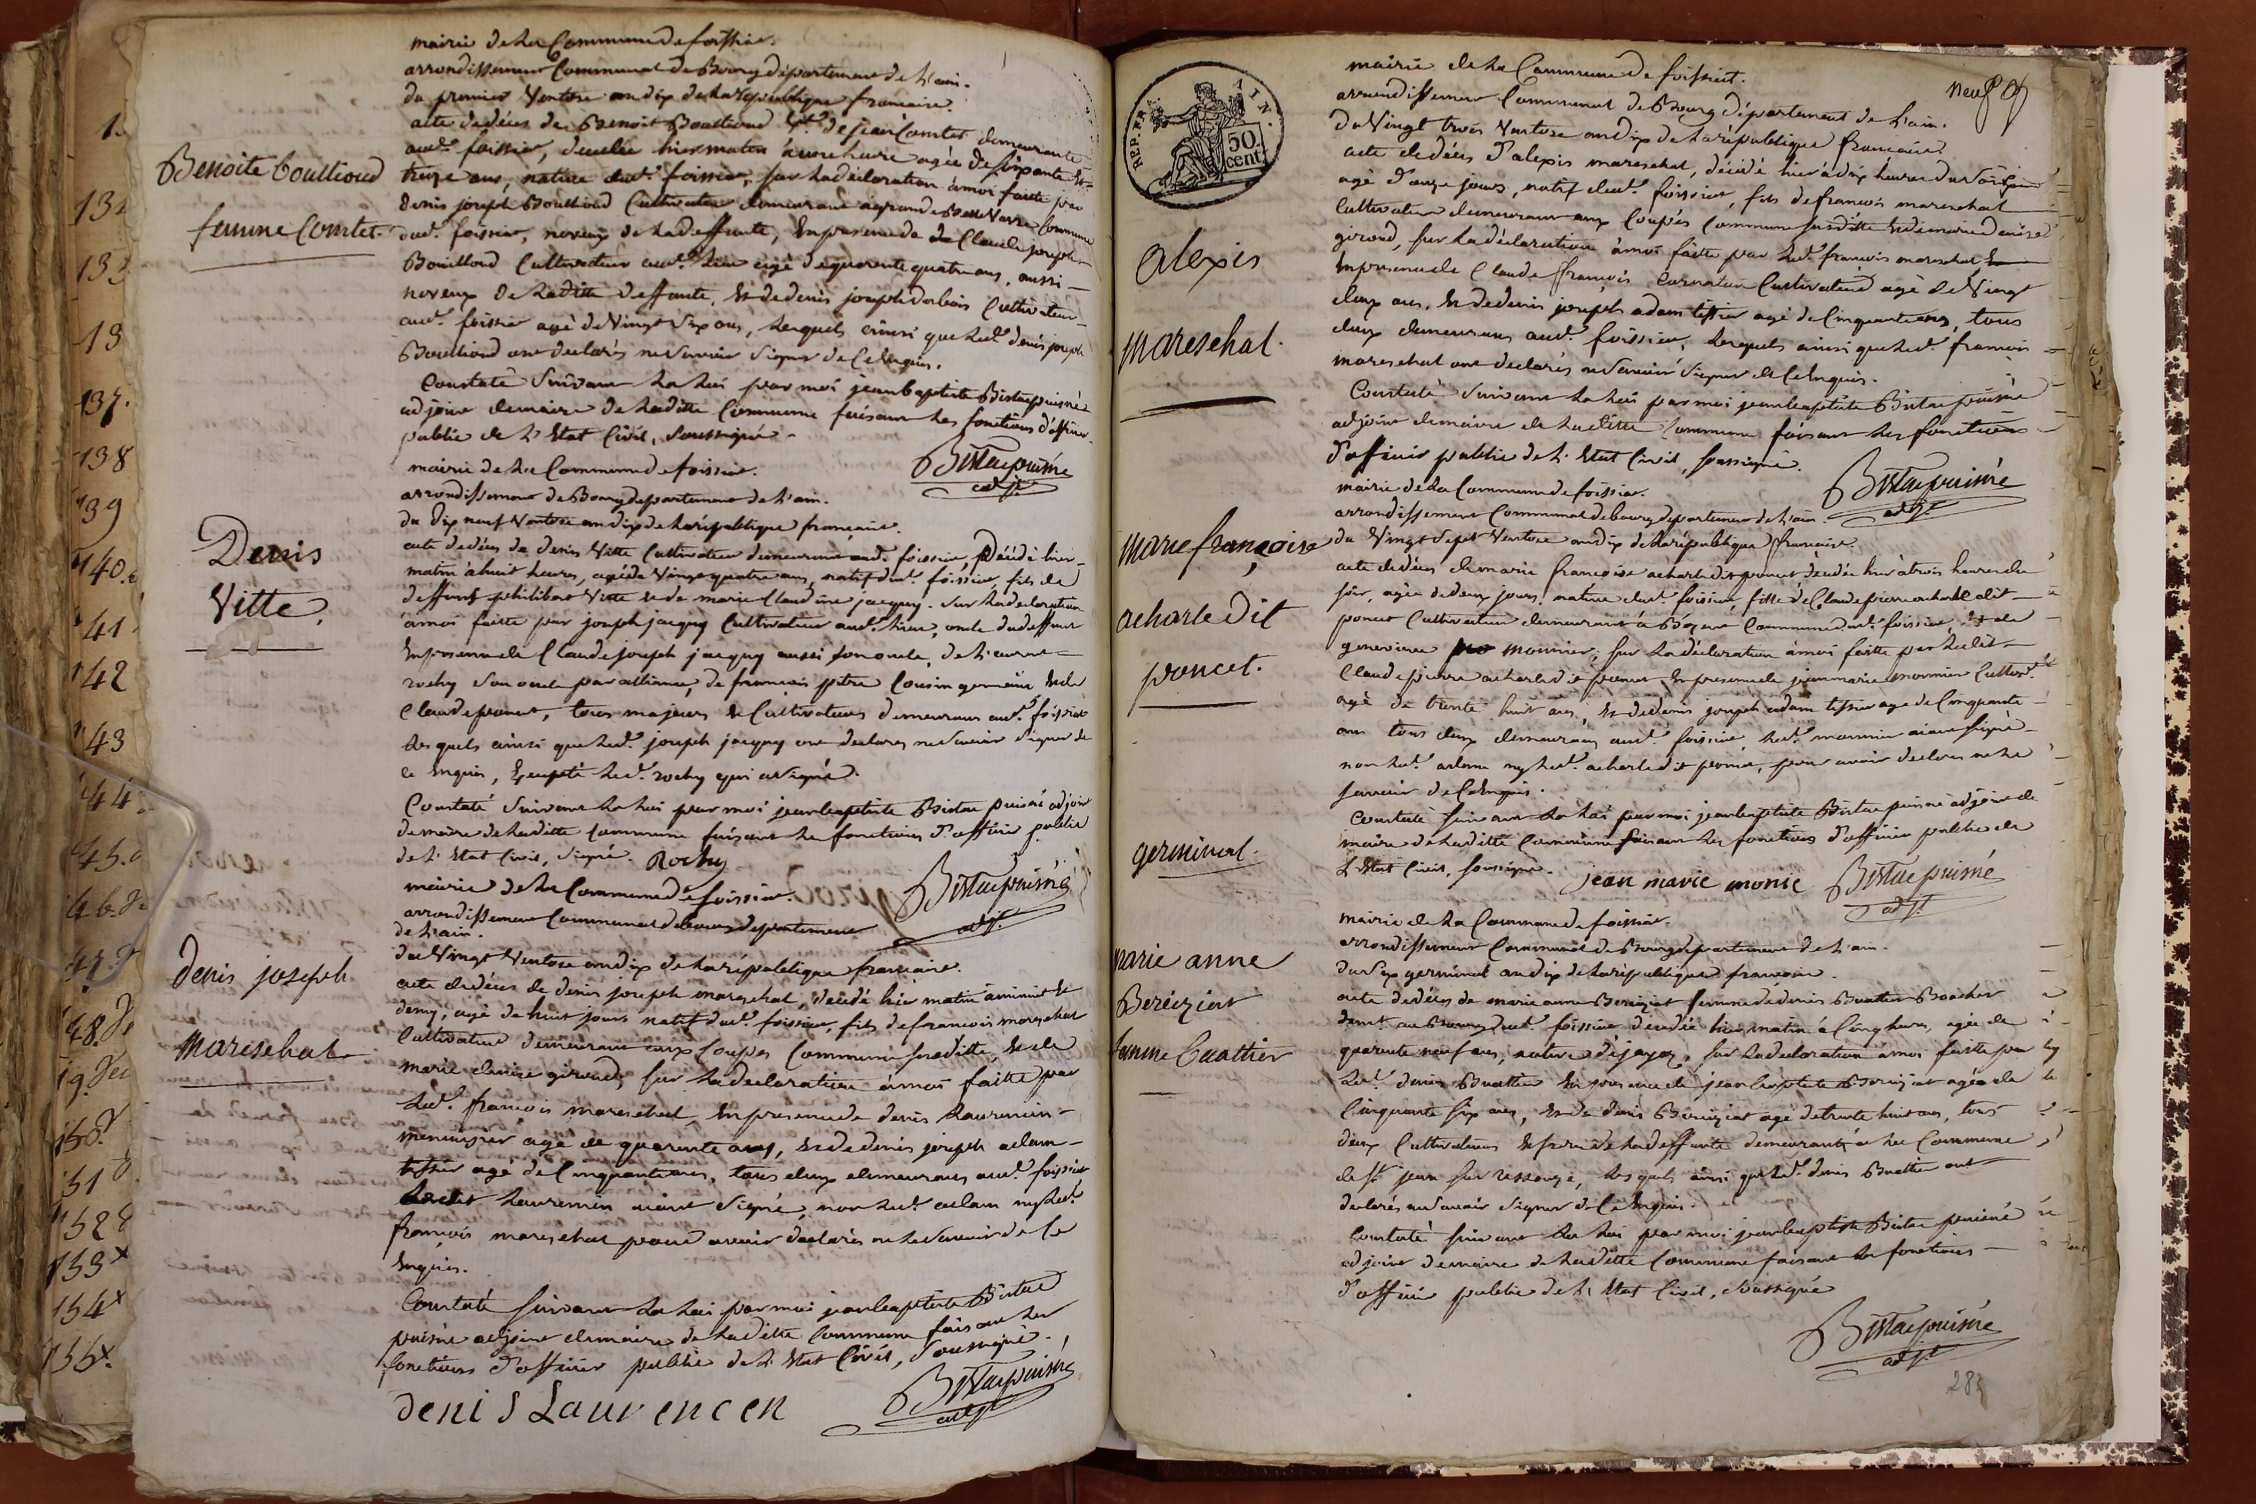 mairie de La Commune de foissiat.
arrondissement Communal de Bourg département de L'ain.
du premier Ventose an dix de La république francaise.
acte de décés de Benoit Boullioud de jean Comtet demeurante
aud.t foissiat, décédée hier matin à une heure agée de soixante et
treize ans, native dud.t foissiat, sur La déclaration à moi faite par
Denis joseph Boullioud Cultivateur demeurant Commune
dud.t foissiat, neveux de La deffunte, En presence de de Claude joseph
Bouilloud Cultivateur aud.t Lieu agé de quarente quatre ans, aussi
neveux de Laditte deffunte, Et de denis joseph Cultivateur
aud.t foissiat agé de Vingt six ans, Lesquels ainsi que Led.t denis joseph
Boullioud ont declarés ne Savoir Signer de Ce Enquis.
Constaté Suivant La Loi par moi jean baptiste Bistac puisné
adjoint de maire de Laditte Commune faisant Les fonctions d'officier
public de L'Etat Civil, Soussigné.
Bistac puisné
adjt
Benoite boullioud
femme Comtet.
mairie de La Commune de foissiat.
arrondissement de Bourg departement de L'ain.
du Dix neuf Ventose an dix de La république française.
acte de décés de denis Vitte Cultivateur demeurant aud.t foissiat, Décédé hier
matin à huit heures, agé de Vingt quatre ans, natif dud.t foissiat, fils de
deffunt philibert Vitte et de marie Claudine jacquy. Sur La declaration
à moi faitte par joseph jacquy Cultivateur aud.t Lieu, oncle dud deffunt
En presence de Claude joseph jacquy aussi son oncle, de
rochy Son oncle par alliance, de francois pitre Cousin germain Et de
Claude poncet, tous majeurs Et Cultivateurs demeurans aud.t foissiat
Lesquels ainsi que Led.t joseph jacquy ont declarés ne Savoir Signer de
ce Enquis, Excepté Led.t rochy qui a signé.
Constaté Suivant La Loi par moi jean baptiste Bistac puisné adjoint
de maire de Laditte Commune faisant Les fonctions d'officier public
de L'Etat Civil, Signé. Rochy
Bistac puisné
adjt
Denis
Vitte.
mairie de La Commune de foissiat.
arrondissement Communal de bourg departement
de L'ain.
du Vingt Ventose an dix de La république française.
acte de décés de denis joseph mareschal, décédé hier matin à minuit Et
demy, agé de huit jours natif dud.t foissiat, fils de francois mareschal
Cultivateur demeurant aux Coupes Commune susditte, Et de
marie denise giroud, sur La declaration à moi faitte par
Led.t francois mareschal En presence de denis Laurencin
menuisier agé de quarente ans, Et de denis joseph adam
tissier agé de Cinquante ans, tous deux demeurans aud.t foissiat
Laurencin aiant Signé, non Led.t adam ny Led.t
françois mareschal pour avoir declarés ne Le Savoir de Ce
Enquis.
Constaté suivant La Loi par moi jean baptiste Bistac
puisné adjoint de maire de Laditte Commune faisant Les
fonctions d'officier public de L'Etat Civil, Soussigné.
denis Laurencen
Bistac puisné
adjt
denis joseph
Mareschal
mairie de La Commune de foissiat.
neuf 9
arrondissement Communal de Bourg département de L'ain.
du Vingt trois Ventose an dix de La république francaise.
acte de décés d'alexis mareschal, décédé hier à dix heures du Soir
agé d'onze jours, natif dud.t foissiat, fils de francois mareschal
Cultivateur demeurant aux Coupés Commune susditte Et de marie denise
giroud, sur La déclaration à moi faitte par Led.t francois mareschal, Et
En presence de Claude françois Cultivateur agé de Vingt
deux ans, Et de denis joseph adam tissier agé de Cinquante ans, tous
deux demeurans aud.t foissiat, Lesquels ainsi que Led.t francois
mareschal ont declarés ne Savoir Signer de Ce Enquis.
Constaté Suivant La Loi par moi jean baptiste Bistac puisné
adjoint de maire de Laditte Commune faisant Les fonctions
d'officier public de L'Etat Civil, soussigné.
Bistac puisné
adjt
REP. FRA. AIN.
50 cent.
alexis
mareschal.
mairie de La Commune de foissiat.
arrondissement Communal de bourg departement de L'ain.
du Vingt Sept Ventose an dix de La république francaise.
acte de décés de marie francoise acharle dit poncet décédée hier à trois heures du
soir, agée de deux jours, native dud.t foissiat, fille de Claude pierre acharle dit
poncet Cultivateur demeurant à Commune dud.t foissiat, Et de
genevieve monnier, sur La déclaration à moi faitte par Ledit
Claude pierre acharle dit poncet En presence de jean marie monnier Cultivr
agé de trente huit ans, Et de denis joseph adam tissier agé de Cinquante
ans tous deux demeurans aud.t foissiat, Led.t monnier aiant signé
non Led.t adam ny Led.t acharle dit poncet, pour avoir declarés ne Le
savoir de Ce Enquis.
Constaté suivant La Loi par moi jean baptiste Bistac puisné adjoint de
maire de Laditte Commune faisant Les fonctions d'officier public de
L'Etat Civil, soussigné.
jean marie monie
Bistac puisné
adjt
marie françoise
acharle dit
poncet.
germinal.
mairie de La Commune de foissiat.
arrondissement Communal de Bourg departement de L'ain.
du Six germinal an dix de La république francaise.
acte de décés de marie anne Bereiziat femme de denis Buattier
demt. au Bourg dud.t foissiat décédée hier matin à Cinq heures, agée de
quarente neuf ans, native de jayat, sur La declaration à moi faitte par
Led.t denis Buattier En presence de jean baptiste Bereiziat agé de
Cinquante six ans, Et de denis Bereiziat agé de trente huit ans, tous
deux Cultivateurs Et freres de La deffunte demeurants à La Commune
de St jean sur ressouze, Lesquels ainsi que Led.t denis Buattier ont
declarés ne Savoir Signer de Ce Enquis.
Constaté suivant La Loi par moi jean baptiste Bistac puisné
adjoint de maire de Laditte Commune faisant Les fonctions
d'officier public de L'Etat Civil, soussigné
Bistac puisné
adjt
marie anne
Bereiziat
femme buattier
137.
138
139
140.
41
42
43
44
45.
47.
48.
151
152
153
154
155